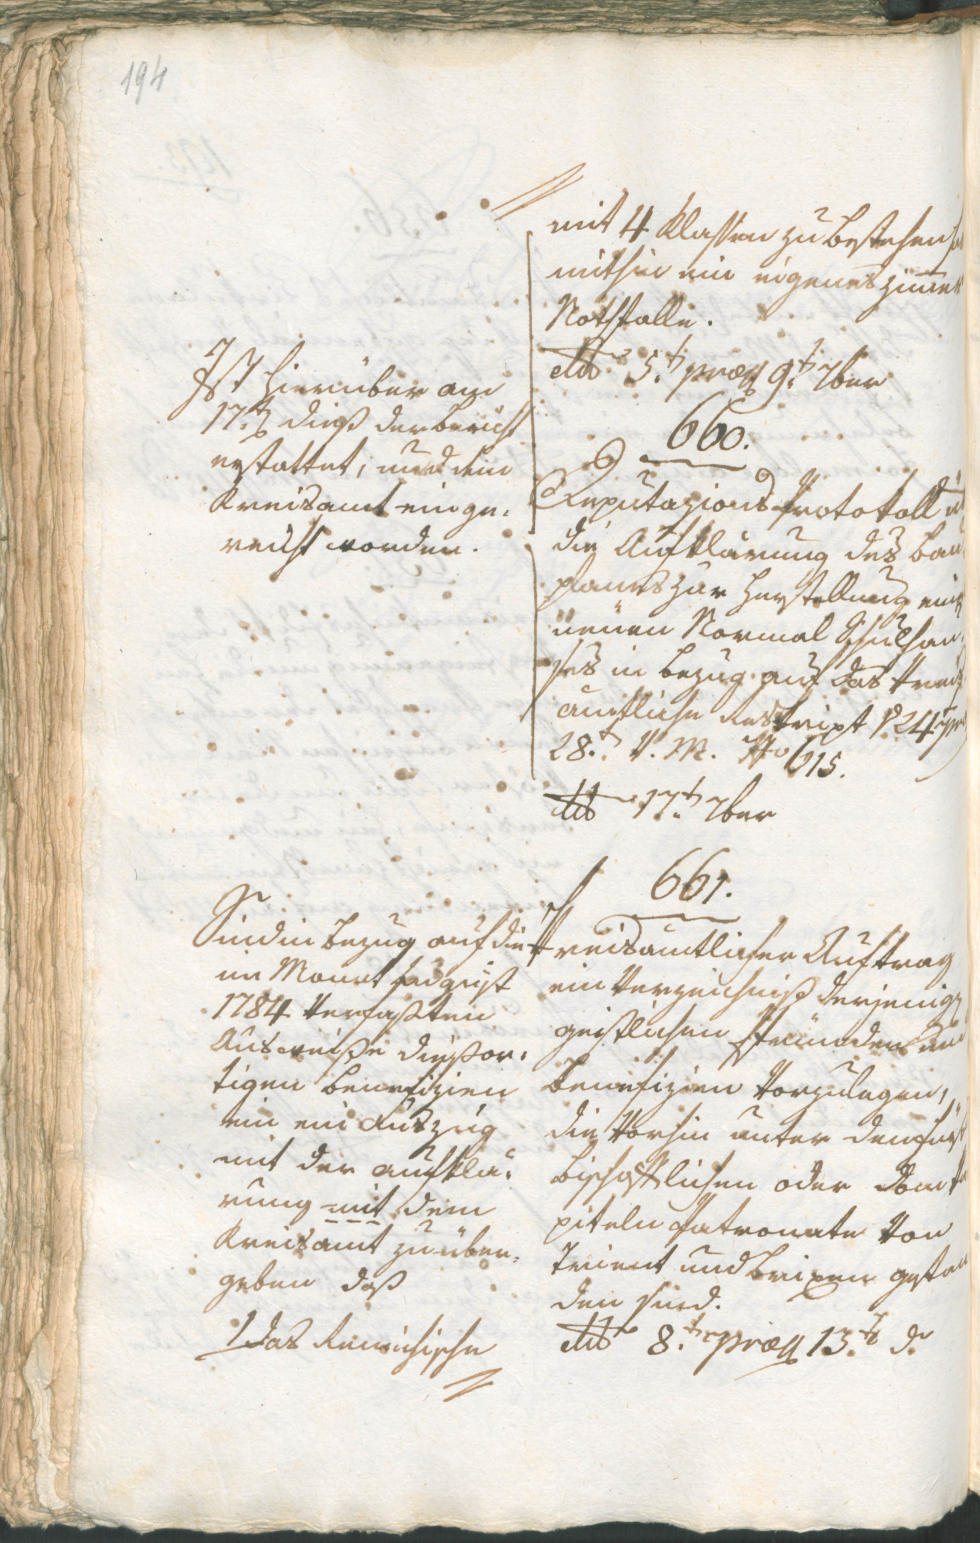 194
mit 4 Klassen zu bestehen
mithin ein eigenes Zimer
Nothfalle.
dto 5.t præs 9.t 7ber
660.
Deputazions Protokoll
die Aufklärung des Bau
planes zur Herstellung eines
neuen Normal Schulhau
ses in Bezug auf das kreis
amtliche Reskript 24t
28.t v. M. No 615.
dto 17.t 7ber
Ist hierüber am
17.t dieß der Bericht
erstattet, und dem
Kreisamt einge-
reicht worden.
661.
Kreisämtlicher Auftrag
ein Verzeichniß derjenigen
geistlichen Pfründen und
Benefizien vorzulegen,
die vorhin unter dem fürst
bischöfflichen oder Dom
piteln Patronate von
Trient und Brixen gestan
den sind.
dto 8.t præs 13.t d.
Sind in Bezug auf die
im Monat August
1784 verfaßten
Ausweise diesor-
tigen Benefizien
ein ein Auszug
mit der Aufklä-
rung mit dem
Kreisamt zu über-
geben daß
1 Das